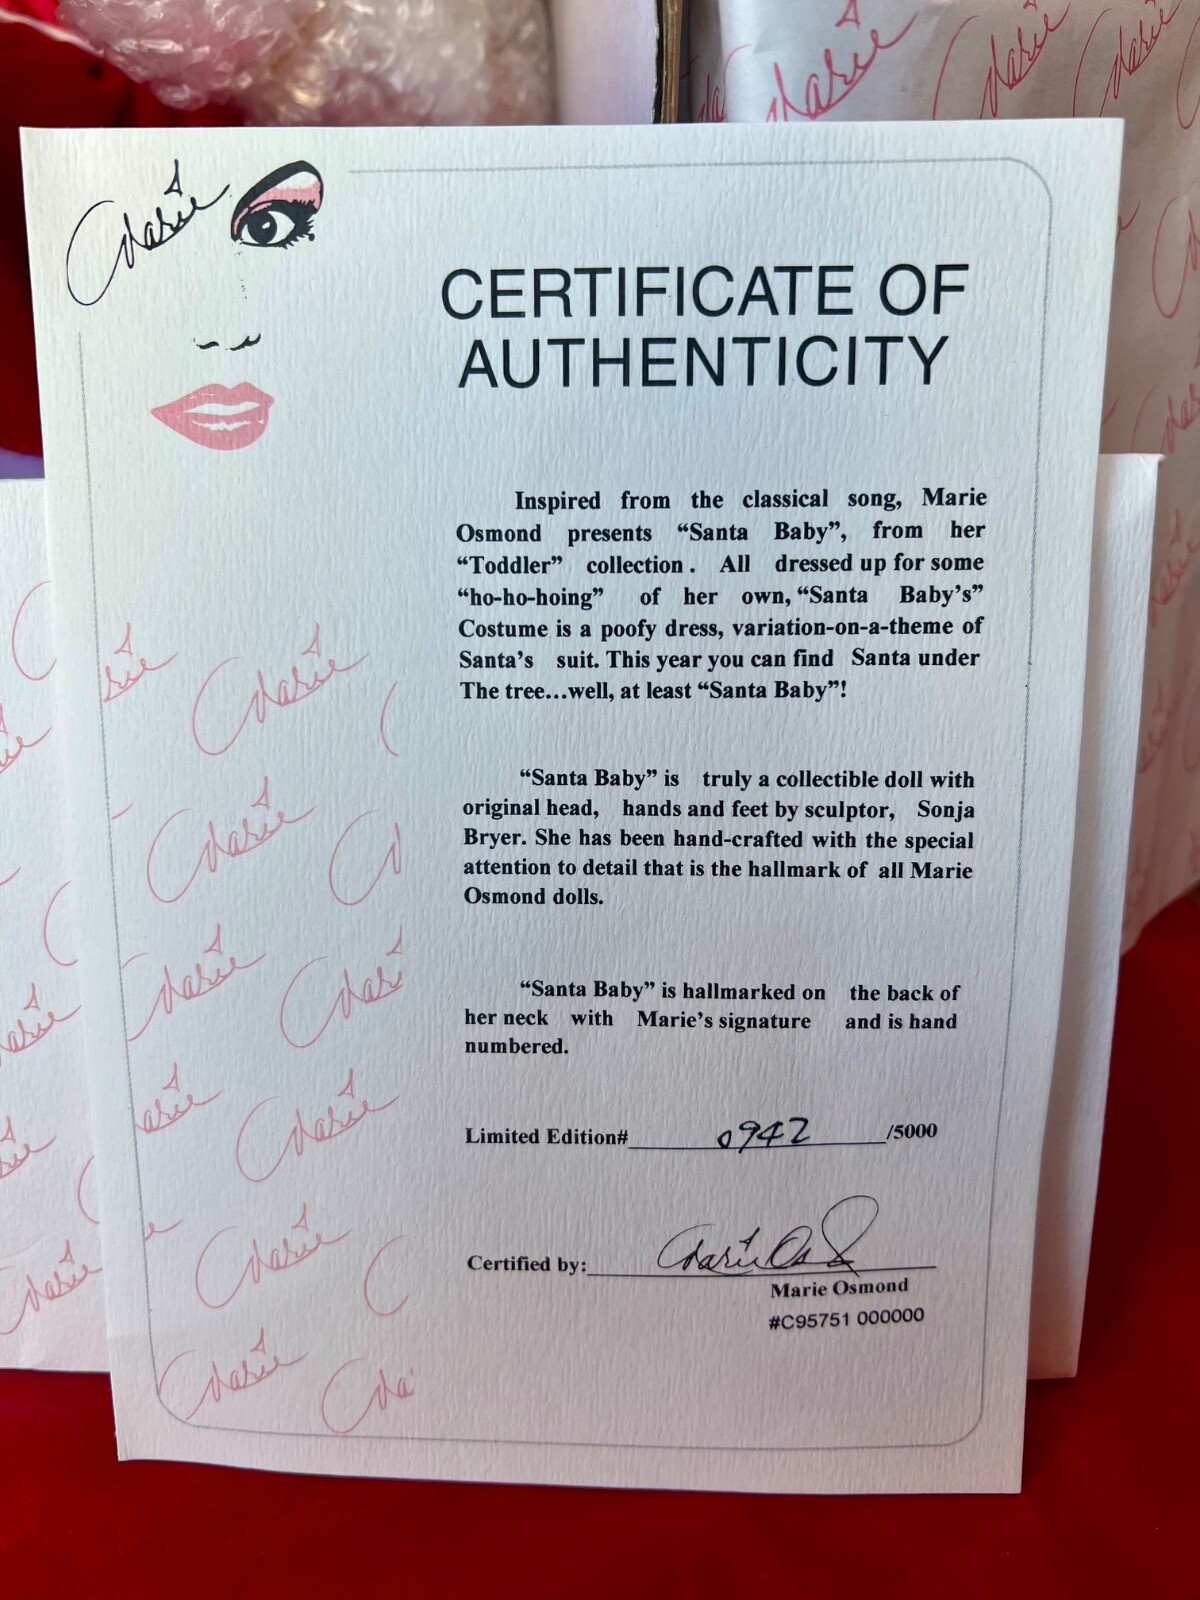 Marie
CERTIFICATE OF
AUTHENTICITY
Inspired from the classical song, Marie
Osmond presents “Santa Baby”, from her
“Toddler” collection. All dressed up for some
“ho-ho-hoing” of her own, “Santa Baby’s”
Costume is a poofy dress, variation-on-a-theme of
Santa’s suit. This year you can find Santa under
The tree…well, at least “Santa Baby”!
“Santa Baby” is truly a collectible doll with
original head, hands and feet by sculptor, Sonja
Bryer. She has been hand-crafted with the special
attention to detail that is the hallmark of all Marie
Osmond dolls.
“Santa Baby” is hallmarked on the back of
her neck with Marie’s signature and is hand
numbered.
Limited Edition# 0942 /5000
Certified by: Marie Os
Marie Osmond
#C95751 000000
Marie
Marie
Marie
Marie
Marie
Marie
Marie